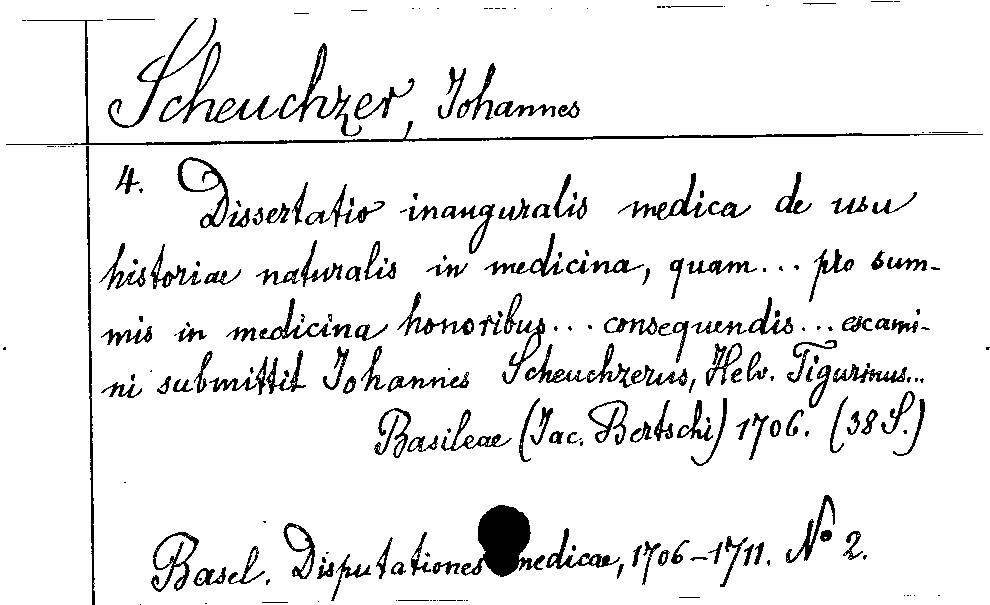 Scheuchzer, Johannes
4. Dissertatio inauguralis medica de usu
historiae naturalis in medicina, quam... pro sum-
mis in medicina honoribus... consequendis... exami-
ni submittit Johannes Scheuchzerus, Helv. Tigurinus...
Basileae (Jac. Bertschi) 1706. (38 S.)
Basel. Disputationes medicae, 1706-1711. No 2.